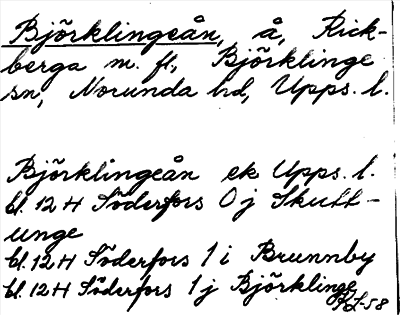 Björklingeån, å, Rick-
berga m. fl., Björklinge
sn, Norunda hd, Upps. l.
Björklingeån ek Upps. l.
bl. 12 H Söderfors 0 j Skutt-
unge
bl. 12 H Söderfors 1 i Brunnby
bl. 12 H Söderfors 1 j Björklinge
KL-58